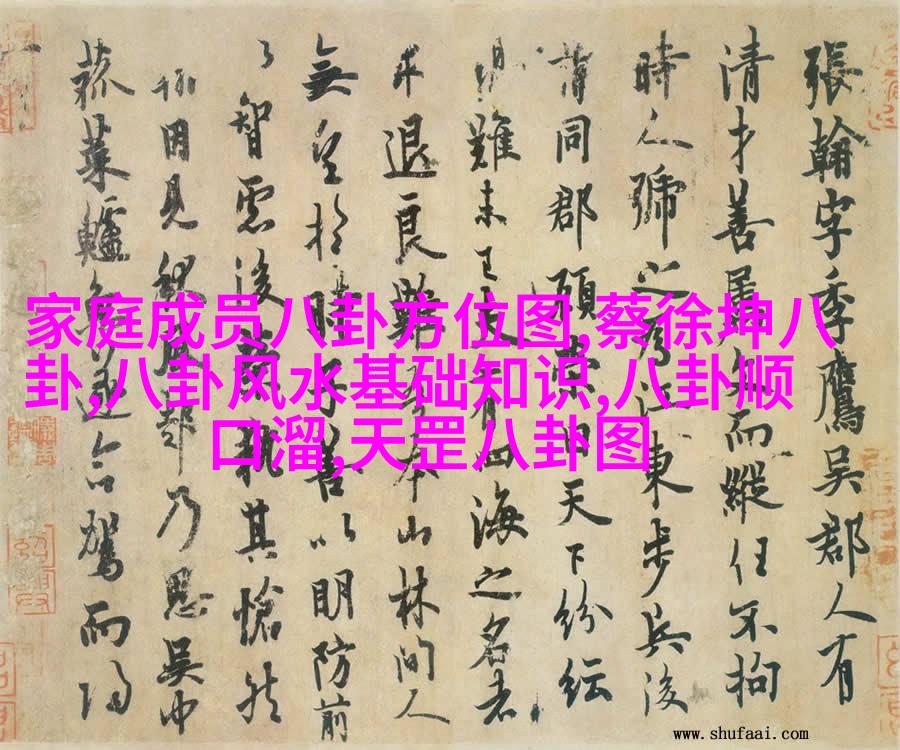 張翰字季鷹吳郡人有
清才善屬文而縱任不拘
時人號之為江東步兵後
謂同郡顧榮曰天下紛紜
難未已夫有四海之名者
求退良難吾本山林間人
無望於時子善以明防前
以智慮後榮執其愴然
翰因見秋風起乃思吳中
菰菜鱸魚遂命駕而歸
家庭成员八卦方位图,蔡徐坤八
卦,八卦风水基础知识,八卦顺
口溜,天罡八卦图
www.shufaai.com